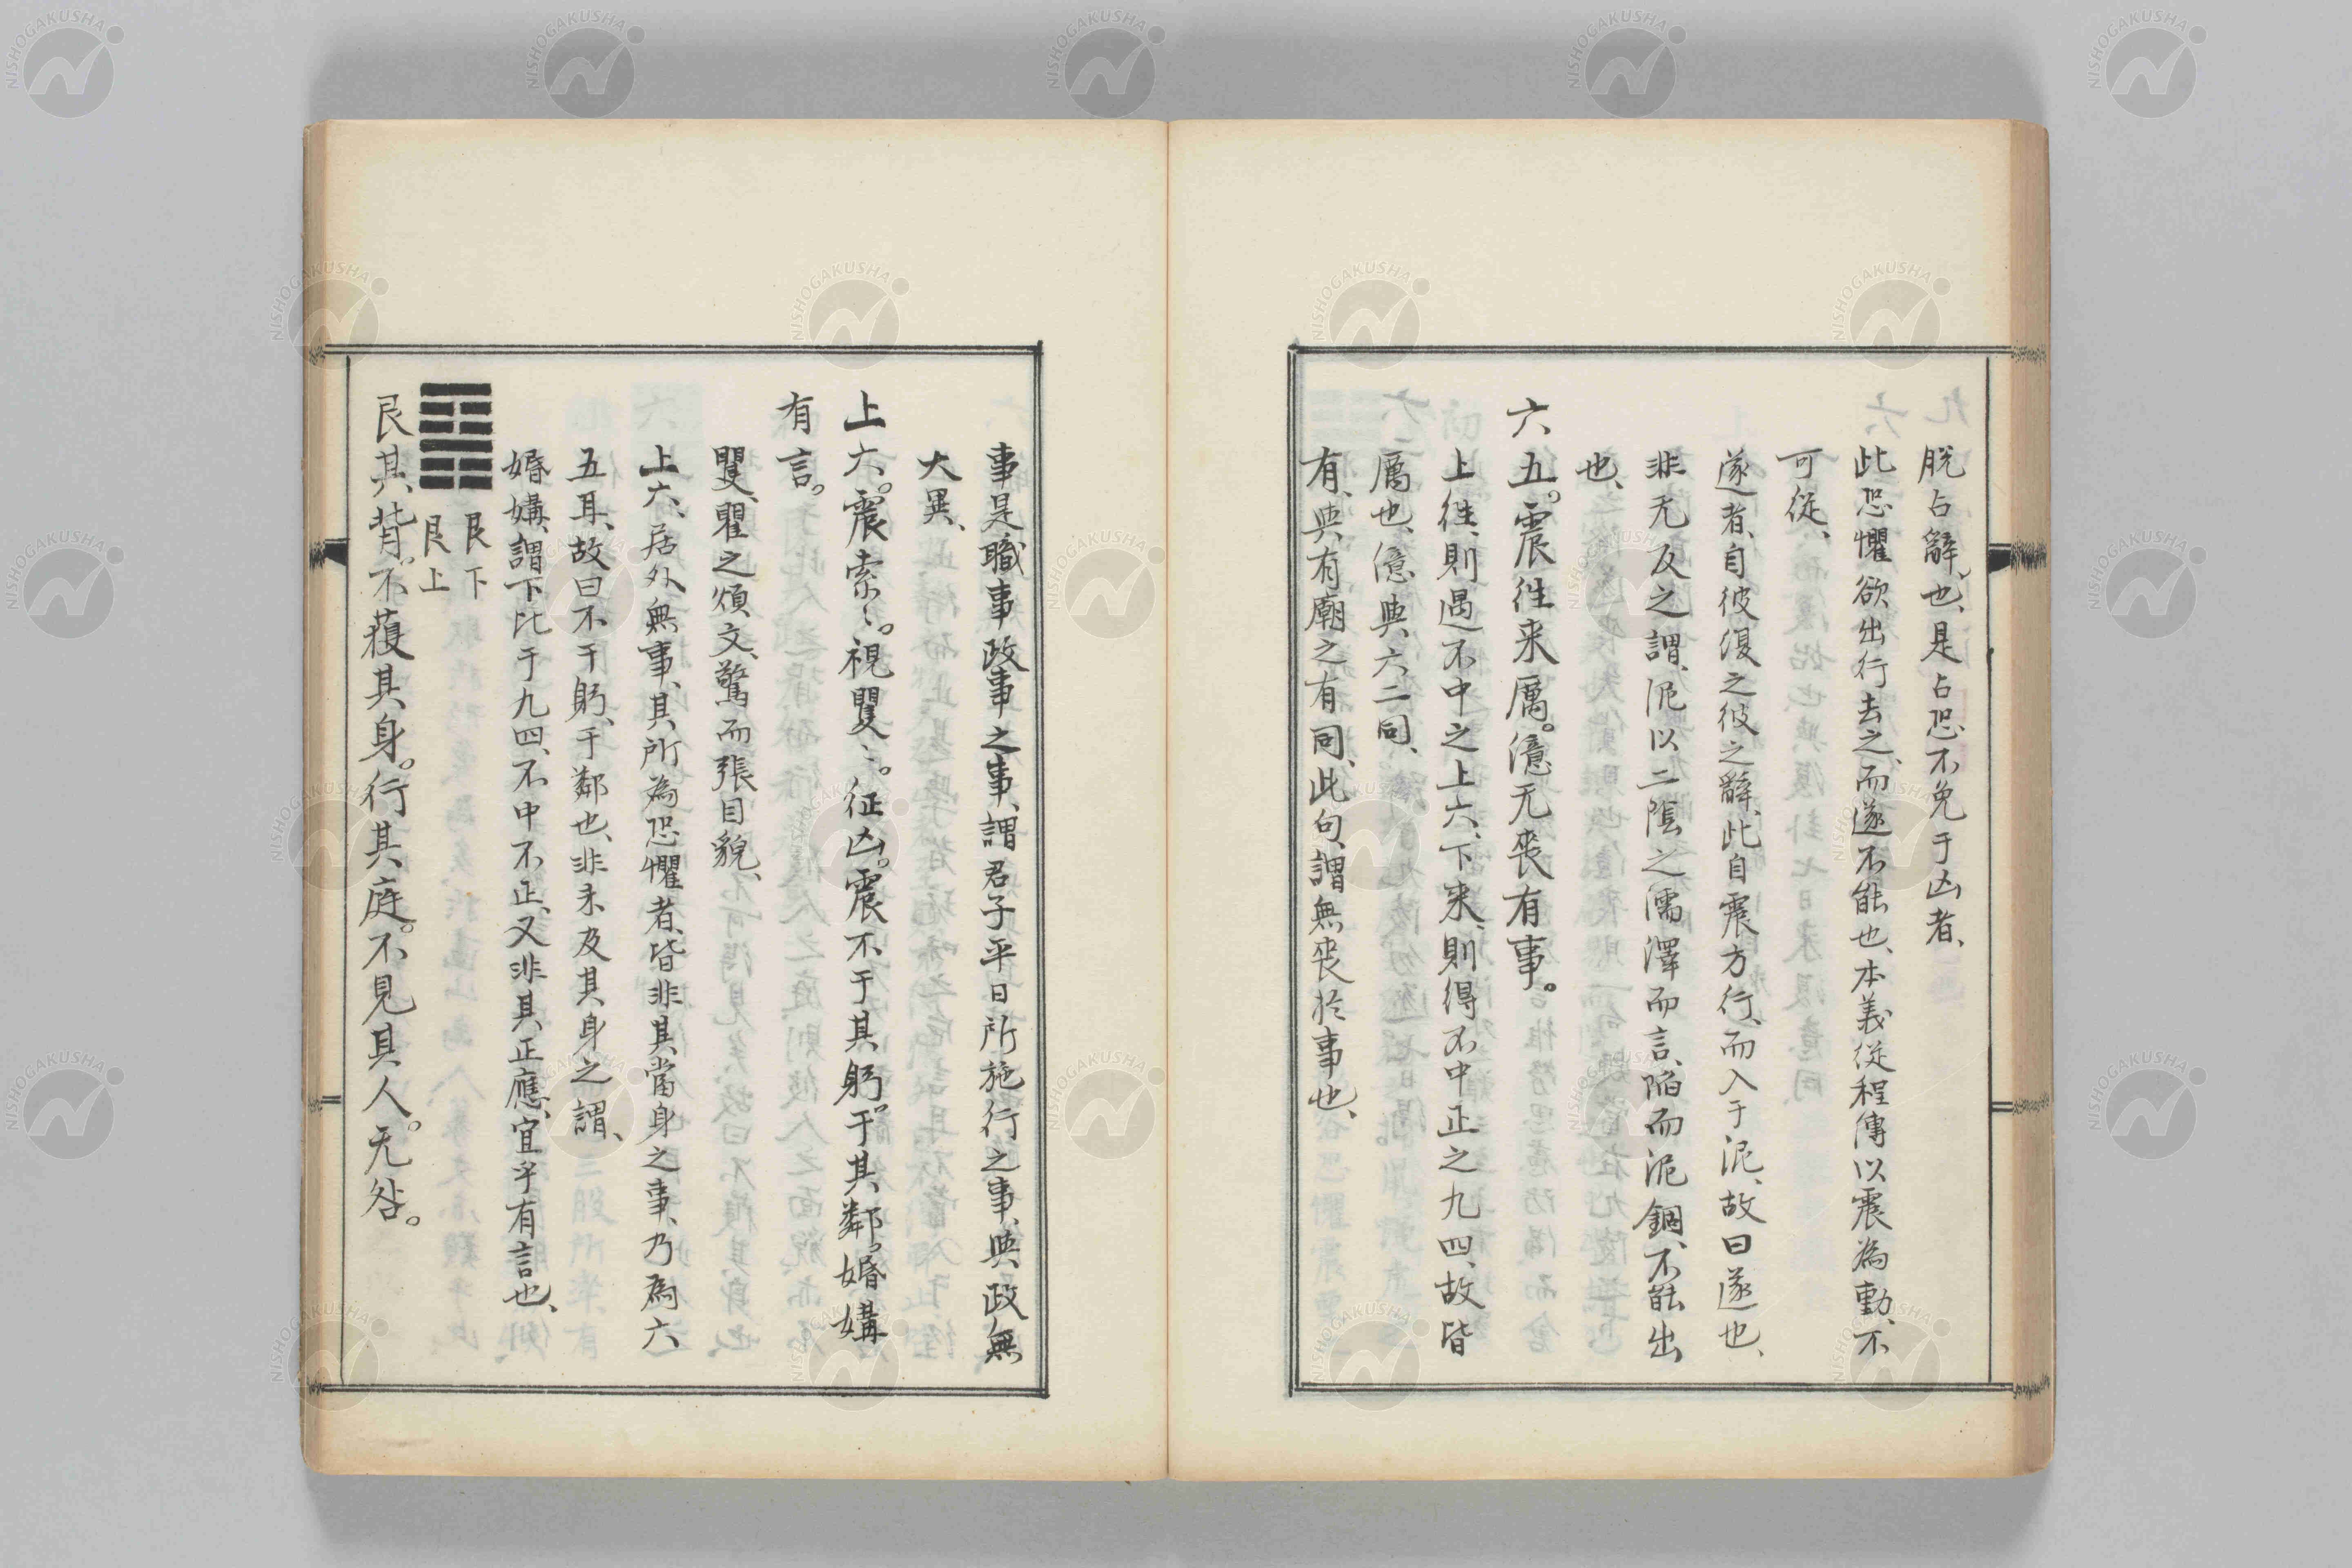 脱占辭也、是占恐不免于凶者、
此恐懼欲出行去之、而遂不能也、本義從程傳以震為動、不
可從、
遂者、自彼復之彼之辭、此自震方行、而入于泥、故曰遂也、
非无反之謂、泥以二陰之濡澤而言、陷而泥錮、不能出
也、
六五。震往来厲。億无喪有事。
上往、則過不中之上六、下来、則得不中正之九四、故皆
厲也、億與六二同、
有、與有廟之有同、此句、謂無喪於事也、
事是職事政事之事、謂君子平日所施行之事、與政無
大異、
上六。震索〻。視矍〻。征凶。震不于其躬。于其鄰。婚媾
有言。
矍、瞿之煩文、驚而張目貌、
上六、居外無事、其所為恐懼者、皆非其當身之事、乃為六
五耳、故曰不于躬、于鄰也、非未及其身之謂、
婚媾、謂下比于九四、不中不正、又非其正應、宜乎有言也、
艮下
艮上
艮其背。不獲其身。行其庭。不見其人。无咎。
NISHOGAKUSHA